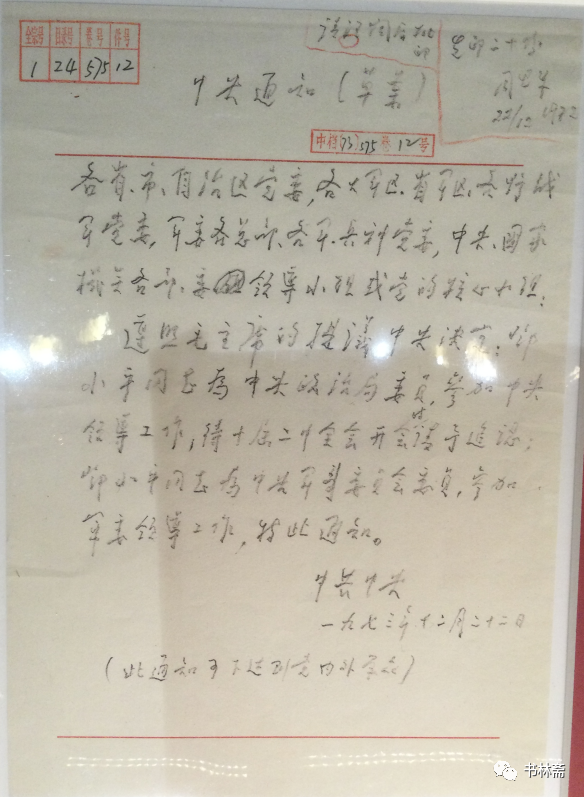 全宗号 目录号 卷号 件号
1 24 575 12
先印二十份
周恩来
22/12 1973
中央通知（草案）
中档(73)575卷12号
各省、市、自治区党委，各大军区、省军区、各野战
军党委，军委各总部、各军、兵种党委，中央、国家
机关各部、委领导小组或党的核心小组：
遵照毛主席的提議，中央决定：鄧
小平同志為中央政治局委員，参加中央
领導工作，待十届二中全会开会时請予追認；
鄧小平同志為中央军事委員会委員，参加
军委领導工作。特此通知。
中共中央
一九七三年十二月二十二日
（此通知可下达到党内外群众）
书林斋